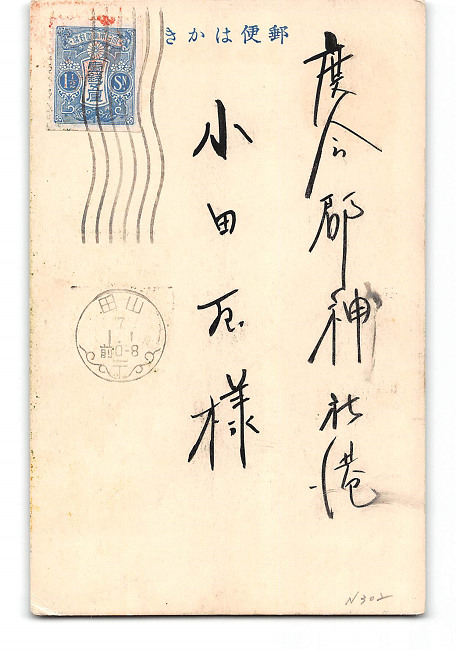 郵便はかき
度会郡神社港
小田原様
1½ Sn
山田
7
1.1
前0-8
N302